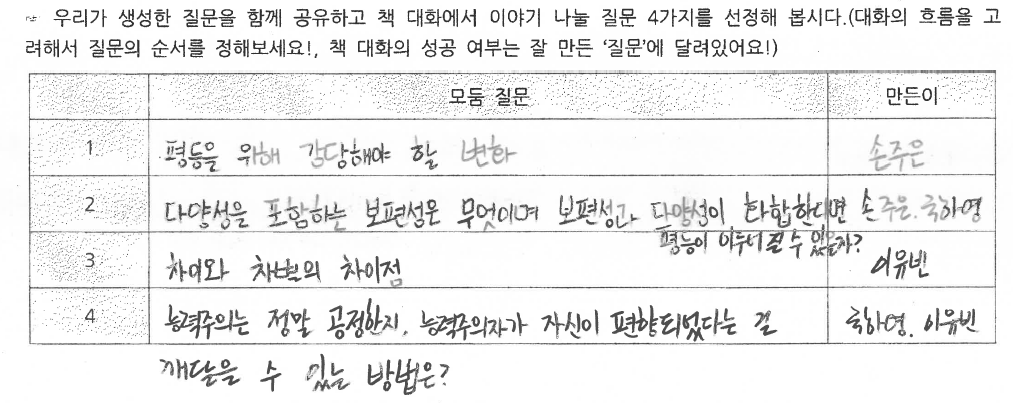 ☞ 우리가 생성한 질문을 함께 공유하고 책 대화에서 이야기 나눌 질문 4가지를 선정해 봅시다.(대화의 흐름을 고
려해서 질문의 순서를 정해보세요!, 책 대화의 성공 여부는 잘 만든 '질문'에 달려있어요!)
모둠 질문 만든이
1 평등을 위해 감당해야 할 변화 손주은
2 다양성을 포함하는 보편성은 무엇이며 보편성과 다양성이 화합한다면 손주은. 국하영
평등이 이루어질 수 있을까?
3 차이와 차별의 차이점 이유빈
4 능력주의는 정말 공정한지, 능력주의자가 자신이 편향되었다는 걸 국하영. 이유빈
깨달을 수 있는 방법은?